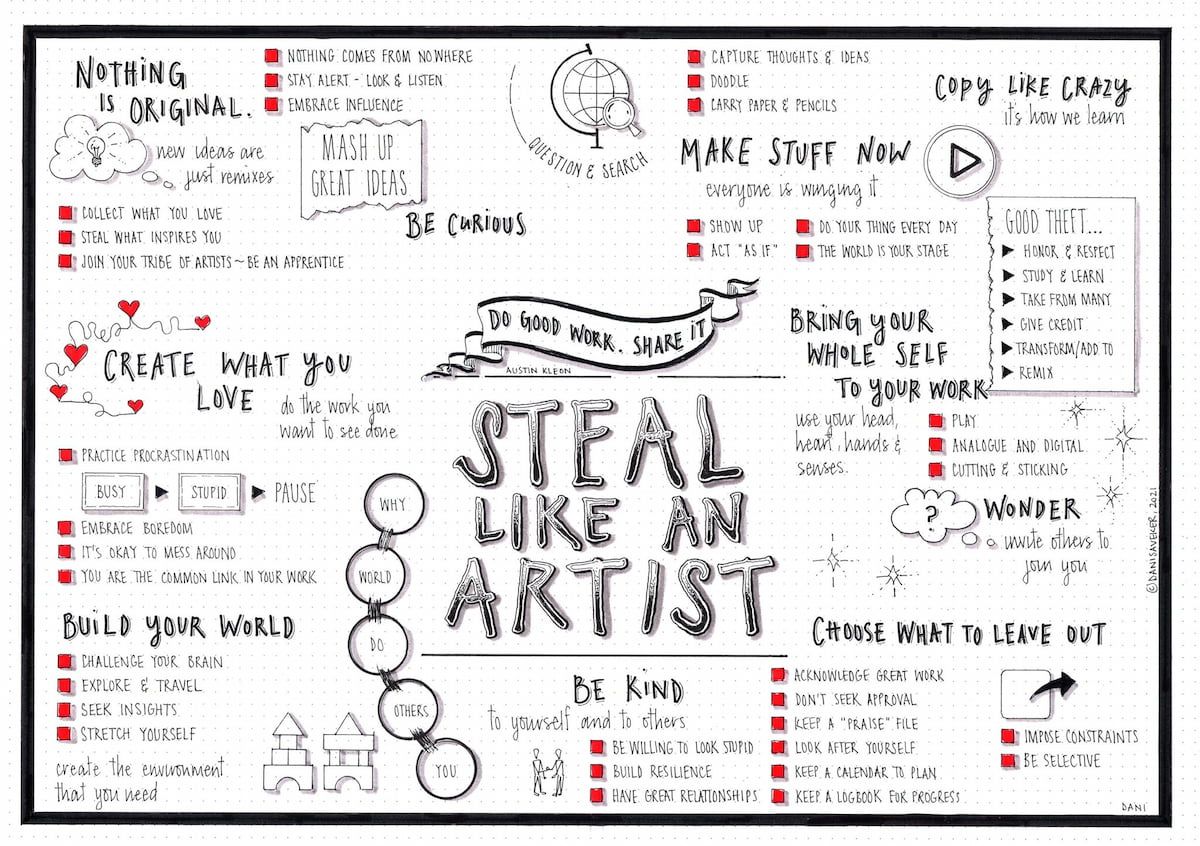 NOTHING
IS ORIGINAL.
NOTHING COMES FROM NOWHERE
STAY ALERT - LOOK & LISTEN
EMBRACE INFLUENCE
new ideas are
just remixes
MASH UP
GREAT IDEAS
COLLECT WHAT YOU LOVE
STEAL WHAT INSPIRES YOU
JOIN YOUR TRIBE OF ARTISTS ~ BE AN APPRENTICE
QUESTION & SEARCH
BE CURIOUS
CAPTURE THOUGHTS & IDEAS
DOODLE
CARRY PAPER & PENCILS
MAKE STUFF NOW
everyone is winging it
SHOW UP
ACT "AS IF"
DO YOUR THING EVERY DAY
THE WORLD IS YOUR STAGE
COPY LIKE CRAZY
it's how we learn
GOOD THEFT...
HONOR & RESPECT
STUDY & LEARN
TAKE FROM MANY
GIVE CREDIT
TRANSFORM/ADD TO
REMIX
CREATE WHAT YOU
LOVE
do the work you
want to see done
PRACTICE PROCRASTINATION
BUSY STUPID PAUSE
EMBRACE BOREDOM
IT'S OKAY TO MESS AROUND
YOU ARE THE COMMON LINK IN YOUR WORK
DO GOOD WORK. SHARE IT
AUSTIN KLEON
STEAL
LIKE AN
ARTIST
WHY
WORLD
DO
OTHERS
YOU
BRING YOUR
WHOLE SELF
TO YOUR WORK
use your head,
heart, hands &
senses.
PLAY
ANALOGUE AND DIGITAL
CUTTING & STICKING
?
WONDER
invite others to
join you
BUILD YOUR WORLD
CHALLENGE YOUR BRAIN
EXPLORE & TRAVEL
SEEK INSIGHTS
STRETCH YOURSELF
create the environment
that you need
BE KIND
to yourself and to others
BE WILLING TO LOOK STUPID
BUILD RESILIENCE
HAVE GREAT RELATIONSHIPS
ACKNOWLEDGE GREAT WORK
DON'T SEEK APPROVAL
KEEP A "PRAISE" FILE
LOOK AFTER YOURSELF
KEEP A CALENDAR TO PLAN
KEEP A LOGBOOK FOR PROGRESS
CHOOSE WHAT TO LEAVE OUT
IMPOSE CONSTRAINTS
BE SELECTIVE
©DANISAVEKER, 2021
DANI